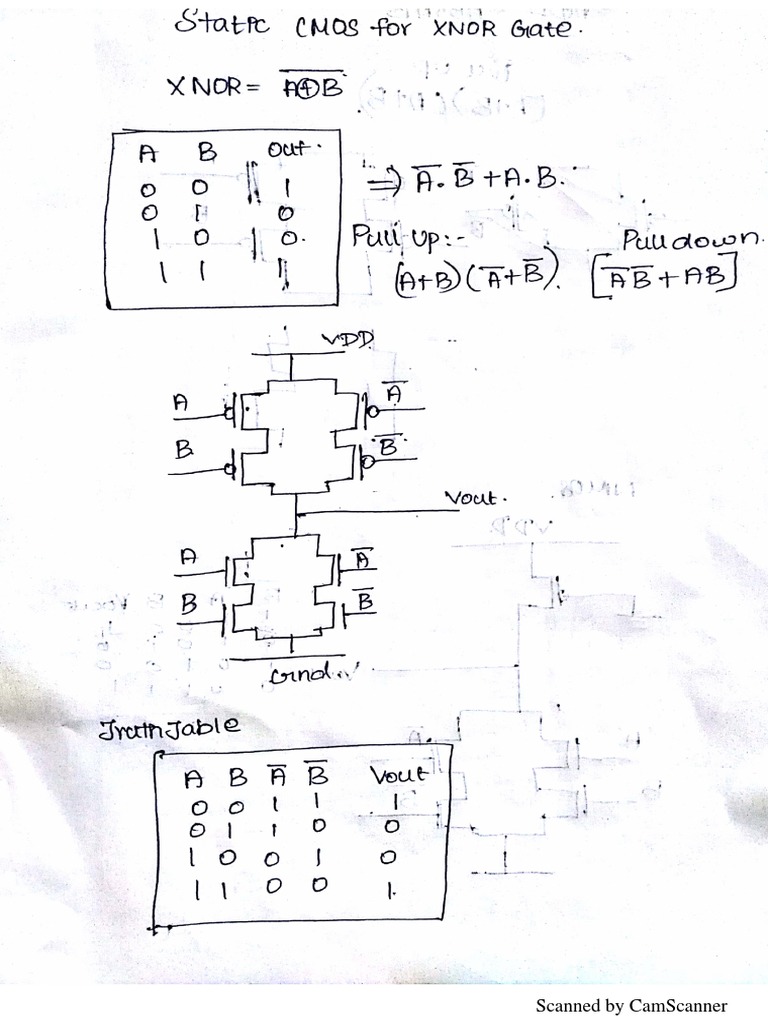 Static CMOS for XNOR Gate.
XNOR = \overline{A⊕B}
A B Out.
0 0 1
0 1 0
1 0 0.
1 1 1
⇒ A̅.B̅ + A.B.
Pull Up:- Pull down.
(A+B)(A̅+B̅). [A̅B̅ + AB]
VDD
A A̅
B B̅
Vout.
A A̅
B B̅
Gnd
Truth Table
A B A̅ B̅ Vout
0 0 1 1 1
0 1 1 0 0
1 0 0 1 0
1 1 0 0 1.
Scanned by CamScanner